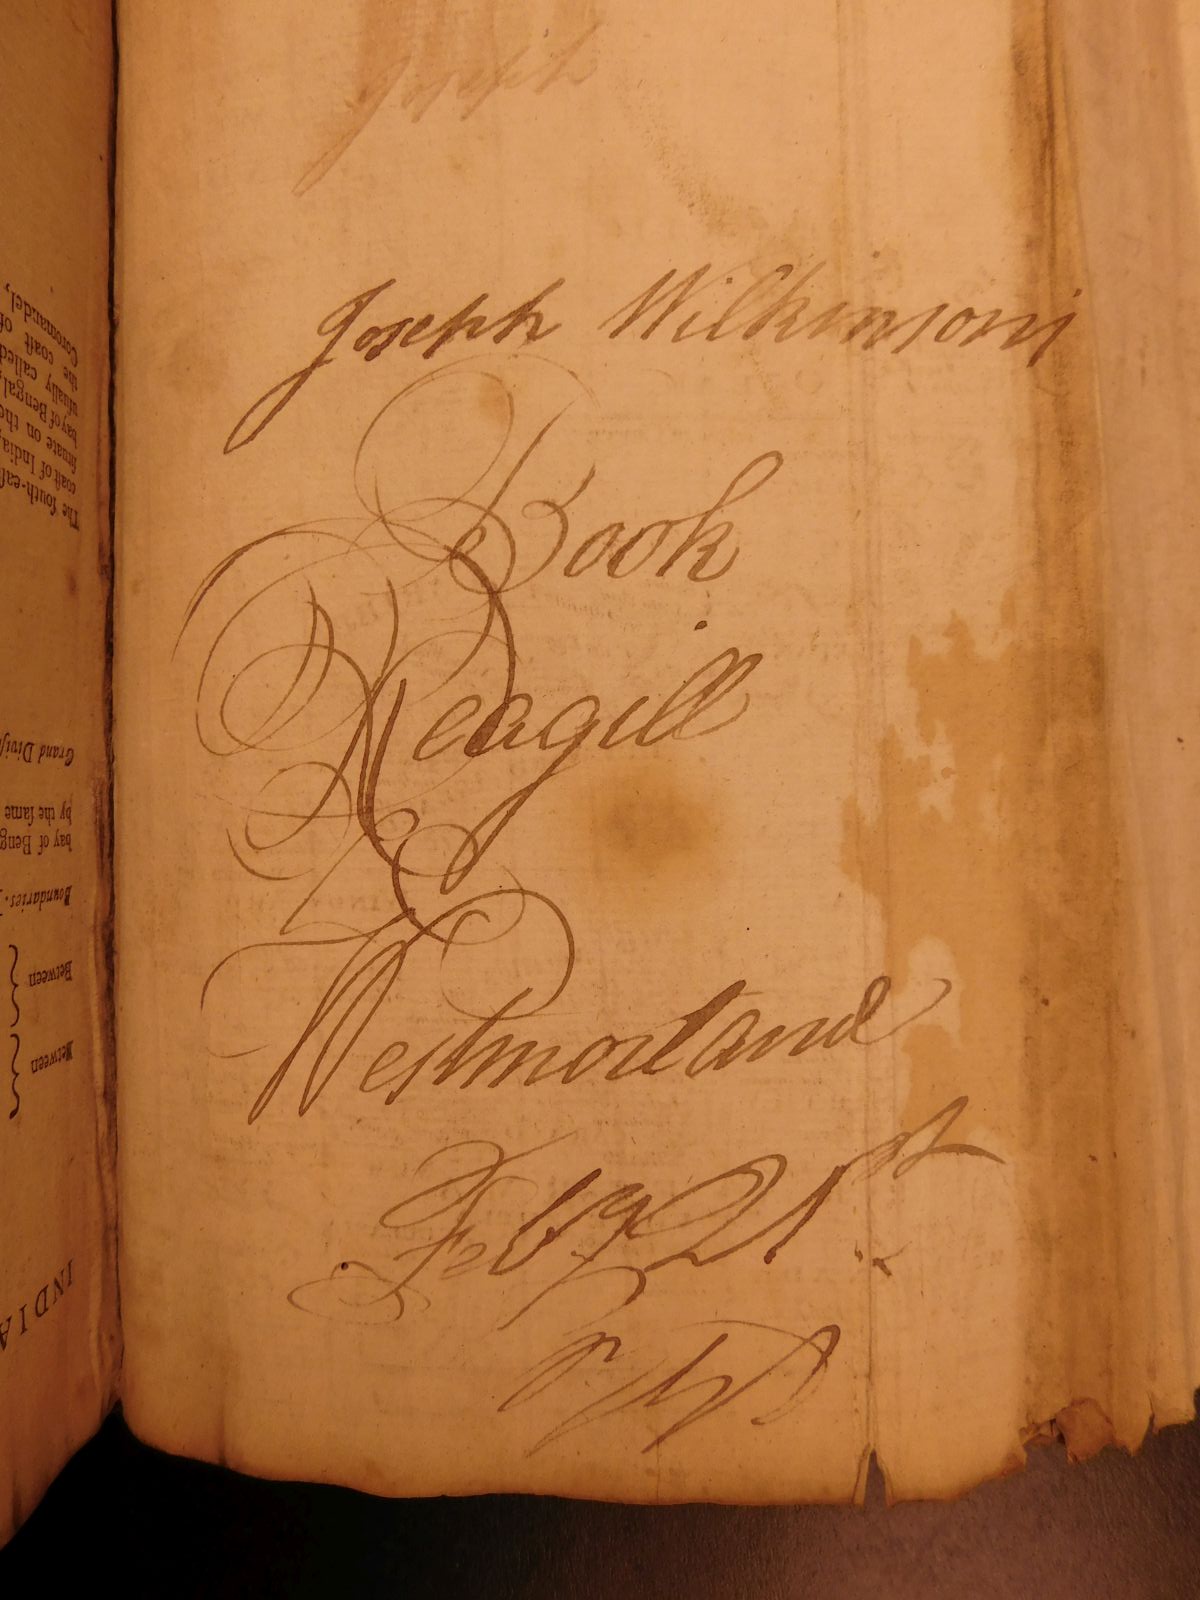 Joseph
Joseph Wilkinson
Book
Reagill
Westmorland
Feby 21st
The south-eas
coast of India,
situate on the
bay of Bengal,
usually called
the coast of
Coromandel,
Grand Divis
by the same
bay of Beng
Boundaries.
Between
Between
INDIA